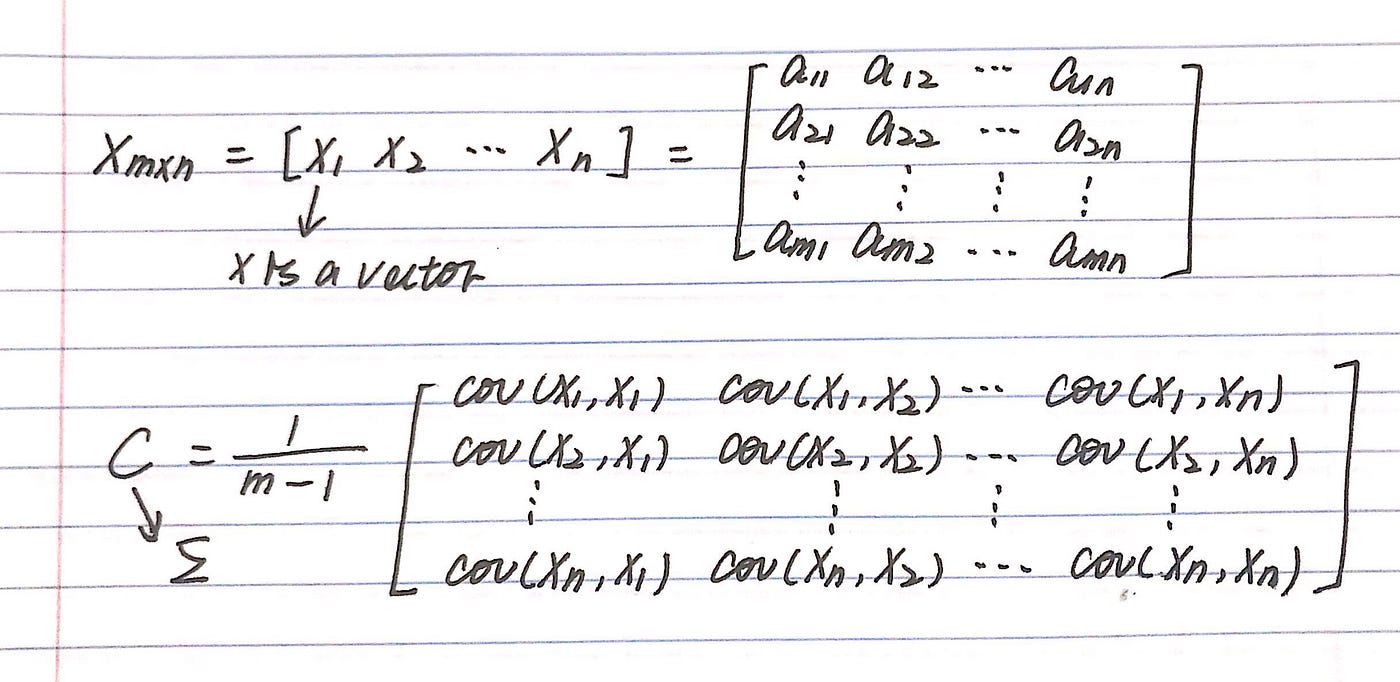 X_{m×n} = [X_1 X_2 ⋯ X_n] = [a_{11} a_{12} ⋯ a_{1n}
a_{21} a_{22} ⋯ a_{2n}
⋮ ⋮ ⋮ ⋮
a_{m1} a_{m2} ⋯ a_{mn}]
↓
X is a vector
C = \frac{1}{m-1} [cov(X_1, X_1) cov(X_1, X_2) ⋯ cov(X_1, X_n)
cov(X_2, X_1) cov(X_2, X_2) ⋯ cov(X_2, X_n)
⋮ ⋮ ⋮ ⋮
cov(X_n, X_1) cov(X_n, X_2) ⋯ cov(X_n, X_n)]
↘
Σ